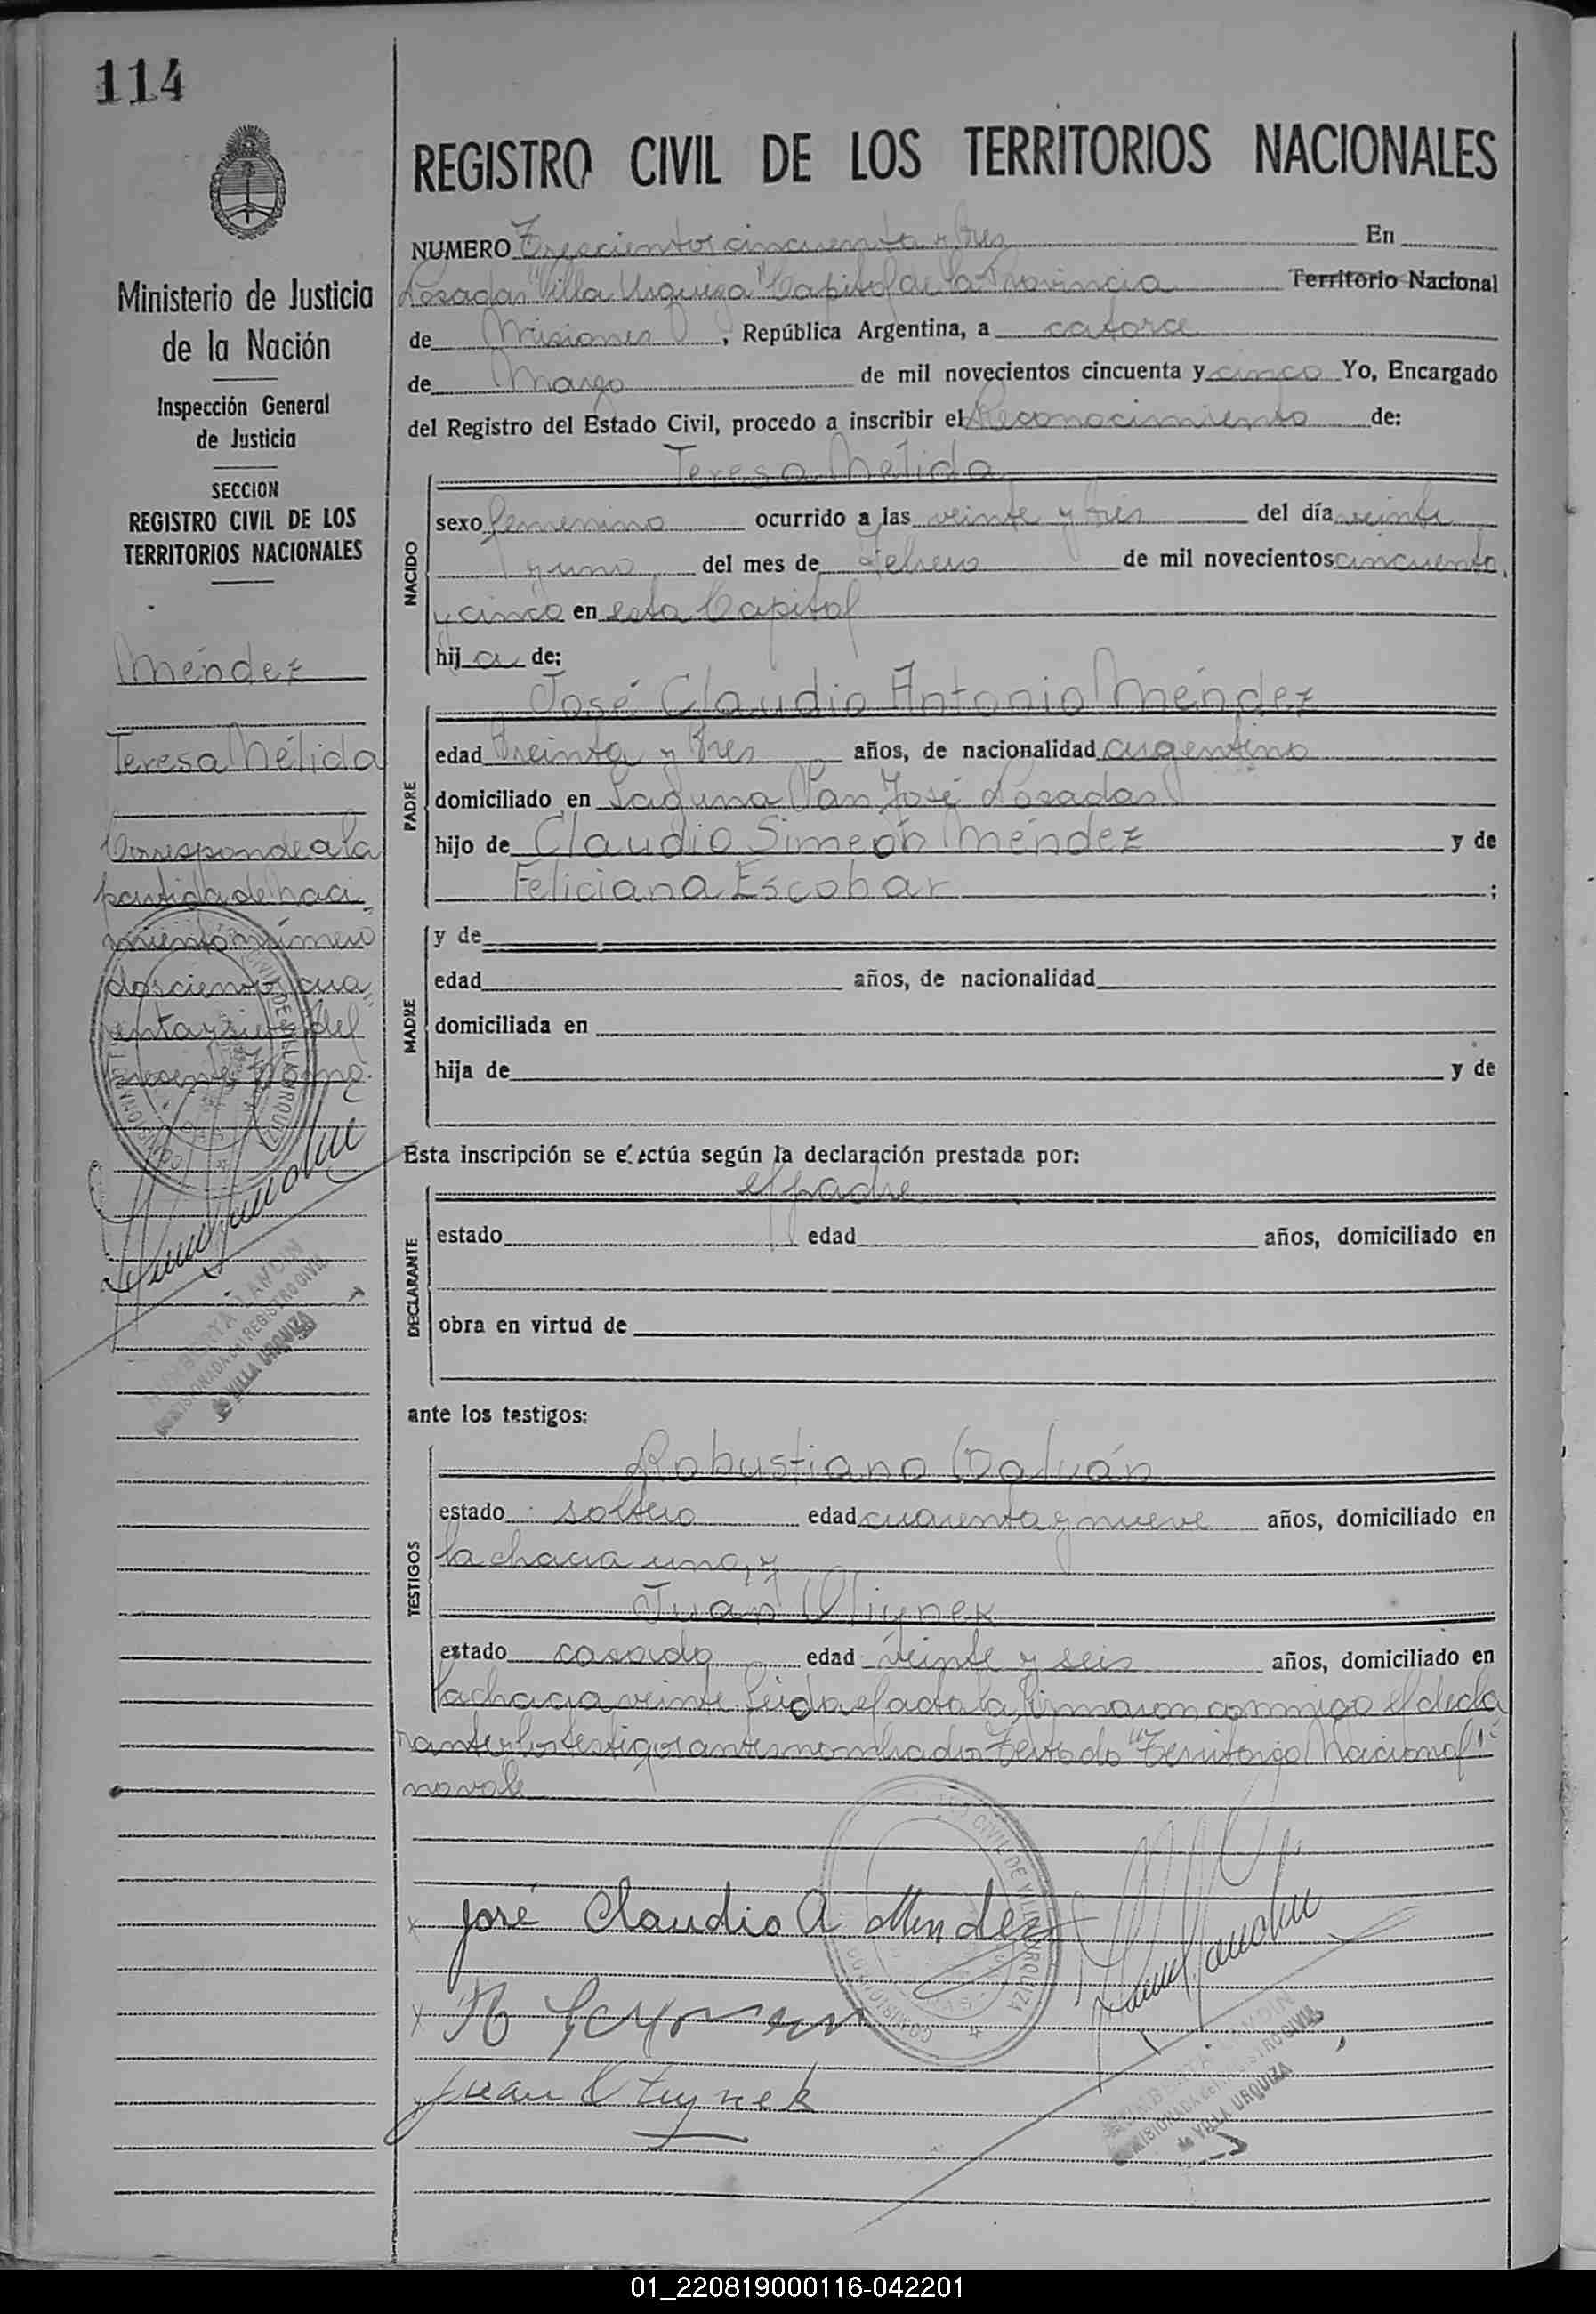 114
REGISTRO CIVIL DE LOS TERRITORIOS NACIONALES
Ministerio de Justicia
de la Nación
Inspección General
de Justicia
SECCION
REGISTRO CIVIL DE LOS
TERRITORIOS NACIONALES
Méndez
Teresa Nélida
Corresponde a la
partida de naci
miento número
doscientos cua
renta y siete del
presente tomo.
NUMERO Trescientos cincuenta y tres En
Posadas "Villa Urquiza" Capital de la Provincia Territorio Nacional
de Misiones, República Argentina, a catorce
de Marzo de mil novecientos cincuenta y cinco Yo, Encargado
del Registro del Estado Civil, procedo a inscribir el Reconocimiento de:
Teresa Nélida
NACIDO
sexo femenino ocurrido a las veinte y tres del día veinte
y uno del mes de Febrero de mil novecientos cincuenta
y cinco en esta Capital
hija de:
José Claudio Antonio Méndez
PADRE
edad treinta y tres años, de nacionalidad argentino
domiciliado en Laguna San José Posadas
hijo de Claudio Simeón Méndez y de
Feliciana Escobar ;
MADRE
y de
edad años, de nacionalidad
domiciliada en
hija de y de
Esta inscripción se efectúa según la declaración prestada por:
el padre
DECLARANTE
estado edad años, domiciliado en
obra en virtud de
ante los testigos:
Robustiano Galván
TESTIGOS
estado soltero edad cuarenta y nueve años, domiciliado en
la chacra uno, y
Juan
estado casado edad veinte y seis años, domiciliado en
la chacra veinte. Leida el acta la firmaron conmigo el decla
rante y los testigos antes nombrados Testado "Territorio Nacional"
no vale
José Claudio A Mendez
Juan
COMISIONADA del REGISTRO CIVIL
de VILLA URQUIZA
01_220819000116-042201